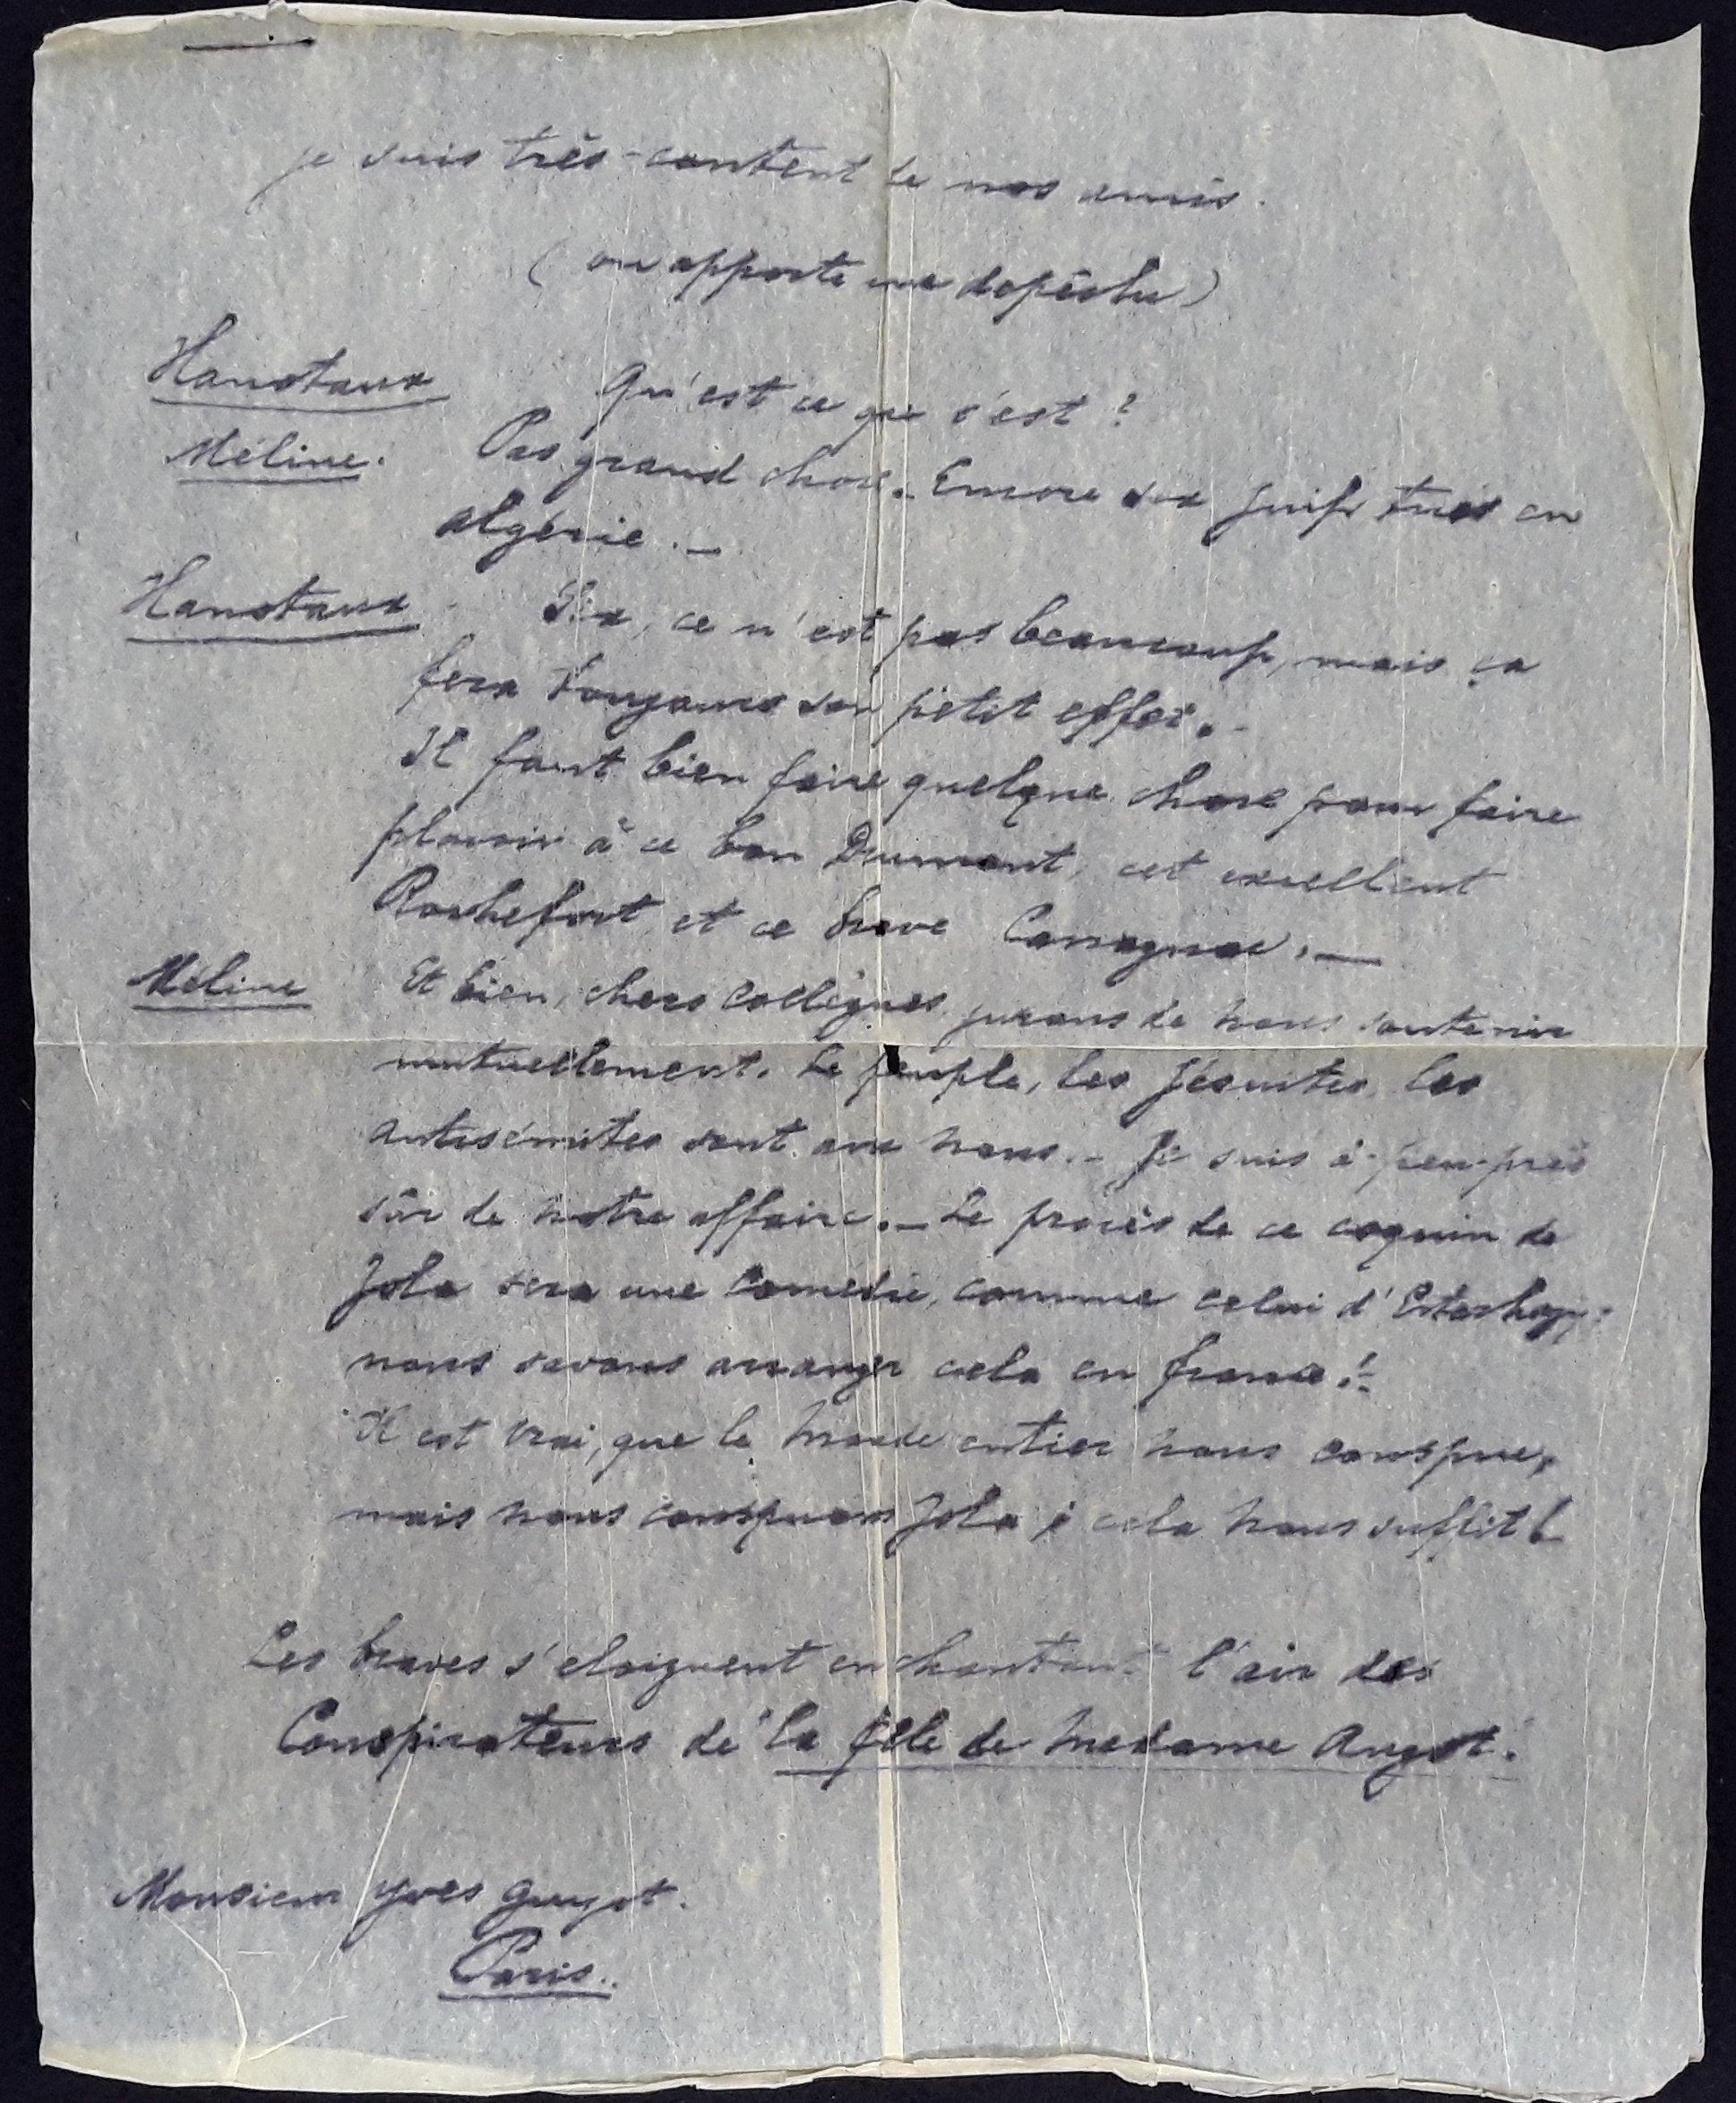 je suis très-content de nos amis.
(on apporte une dépêche)
Hanotaux Qu'est ce que s'est ?
Méline. Pas grand chose. Encore six juifs tués en
Algérie. —
Hanotaux. Six, ce n'est pas beaucoup, mais ça
fera toujours son petit effet. -
Il faut bien faire quelque chose pour faire
plaisir à ce bon Drumont, cet excellent
Rochefort, et ce brave Cassagnac. —
Méline Et bien, chers collègues, jurons de nous soutenir
mutuellement. Le peuple, les Jésuites, les
antisémites sont avec nous. - Je suis à-peu-près
sûr de notre affaire. - Le procès de ce coquin de
Zola sera une Comedie, comme celui d'Esterhazy:
nous savons arranger cela en france! -
Il est vrai, que le monde entier nous conspue,
mais nous conspuons Zola; cela nous suffit!
Les braves s'eloignent en chantant l'air des
Conspirateurs de "la fille de Madame Angot."
Monsieur Yves Guyot.
Paris..